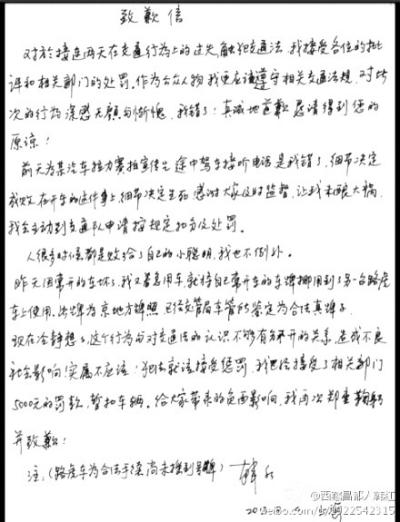 致歉信
对于接连两天在交通行为上的过失，触犯交通法，我接受各位的批
评和相关部门的处罚。作为公众人物我更应该遵守相关交通法规，对此
次的行为深感无颜与惭愧，我错了！真诚地道歉 恳请得到您的
原谅！
前天为某汽车接力赛拍宣传片途中驾车接听电话是我错了，细节决定
成败，在开车的这件事上，细节决定生死 感谢大家及时监督，让我未酿大祸，
我会主动到交通队申请按规定扣分及处罚。
人很多时候都是败给了自己的小聪明，我也不例外。
昨天因常开的车坏了，我又着急用车就将自己常开的车牌挪用到了另一台路虎
车上使用。此牌为京地方牌照 已经交管局车管所鉴定为合法真牌子
现在冷静想了，这个行为与对交通法的认识不够有分不开的关系，造成不良
社会影响！实属不应该！犯法就该接受惩罚，我已经接受了相关部门
5000元的罚款，暂扣车辆。给大家带来的负面影响，我再次郑重鞠躬
并致歉！
注：（路虎车为合法手续 尚未拿到号牌） 韩红
@西藏昌都人韩红